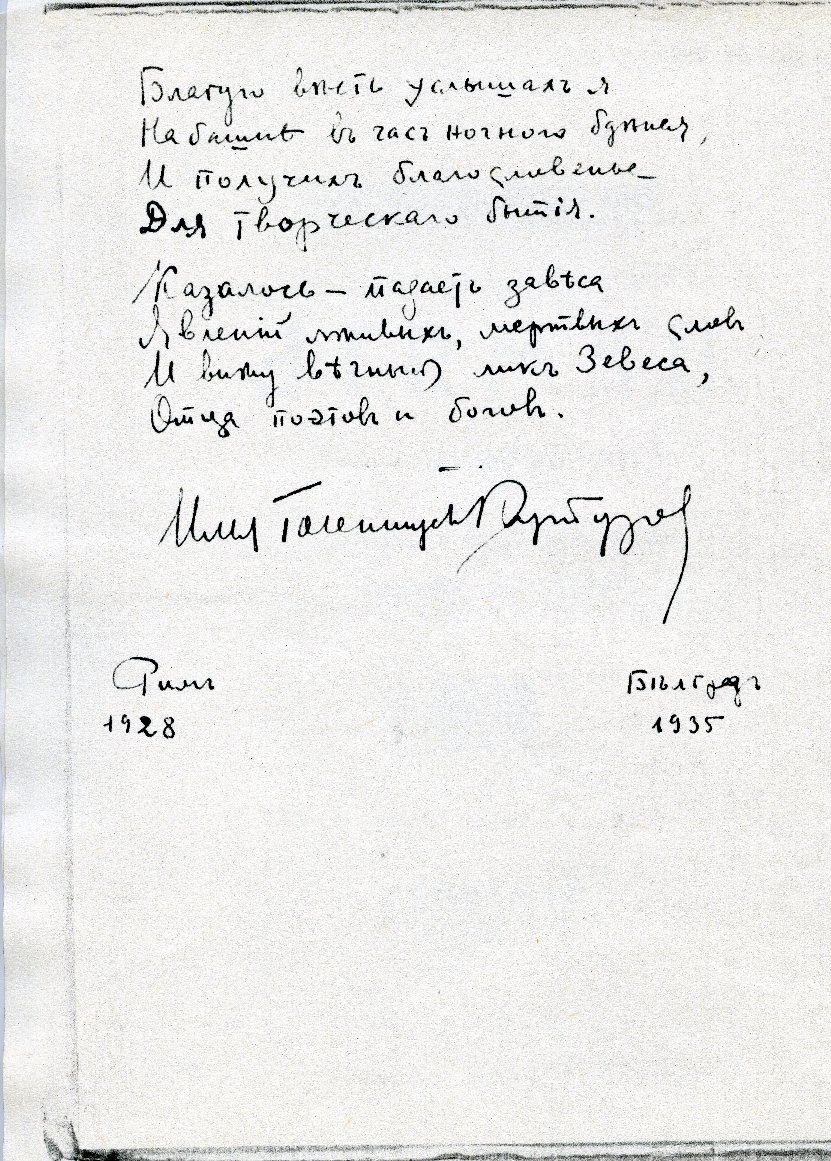 Благую вѣсть услышалъ я
На башнѣ въ часъ ночного бдѣнія,
И получилъ благословенье –
Для творческаго бытія.
Казалось – падаетъ завѣса
Явленій лживыхъ, мертвыхъ словъ
И вижу вѣчный ликъ Зевеса,
Отца поэтовъ и боговъ.
Илья Голенищевъ-Кутузовъ
Римъ
1928
Бѣлградъ
1935